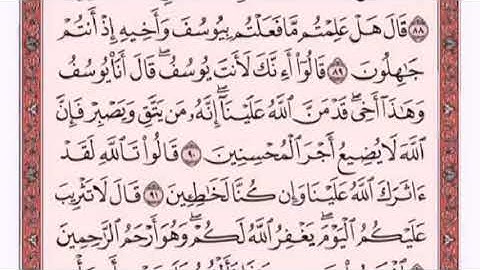 ٨٨ قَالَ هَلْ عَلِمْتُم مَّا فَعَلْتُم بِيُوسُفَ وَأَخِيهِ إِذْ أَنتُمْ
جَٰهِلُونَ ٨٩ قَالُوٓاْ أَءِنَّكَ لَأَنتَ يُوسُفُۖ قَالَ أَنَا۠ يُوسُفُ
وَهَٰذَآ أَخِيۖ قَدْ مَنَّ ٱللَّهُ عَلَيْنَآۖ إِنَّهُۥ مَن يَتَّقِ وَيَصْبِرْ فَإِنَّ
ٱللَّهَ لَا يُضِيعُ أَجْرَ ٱلْمُحْسِنِينَ ٩٠ قَالُواْ تَٱللَّهِ لَقَدْ
ءَاثَرَكَ ٱللَّهُ عَلَيْنَا وَإِن كُنَّا لَخَٰطِـِٔينَ ٩١ قَالَ لَا تَثْرِيبَ
عَلَيْكُمُ ٱلْيَوْمَۖ يَغْفِرُ ٱللَّهُ لَكُمْۖ وَهُوَ أَرْحَمُ ٱلرَّٰحِمِينَ